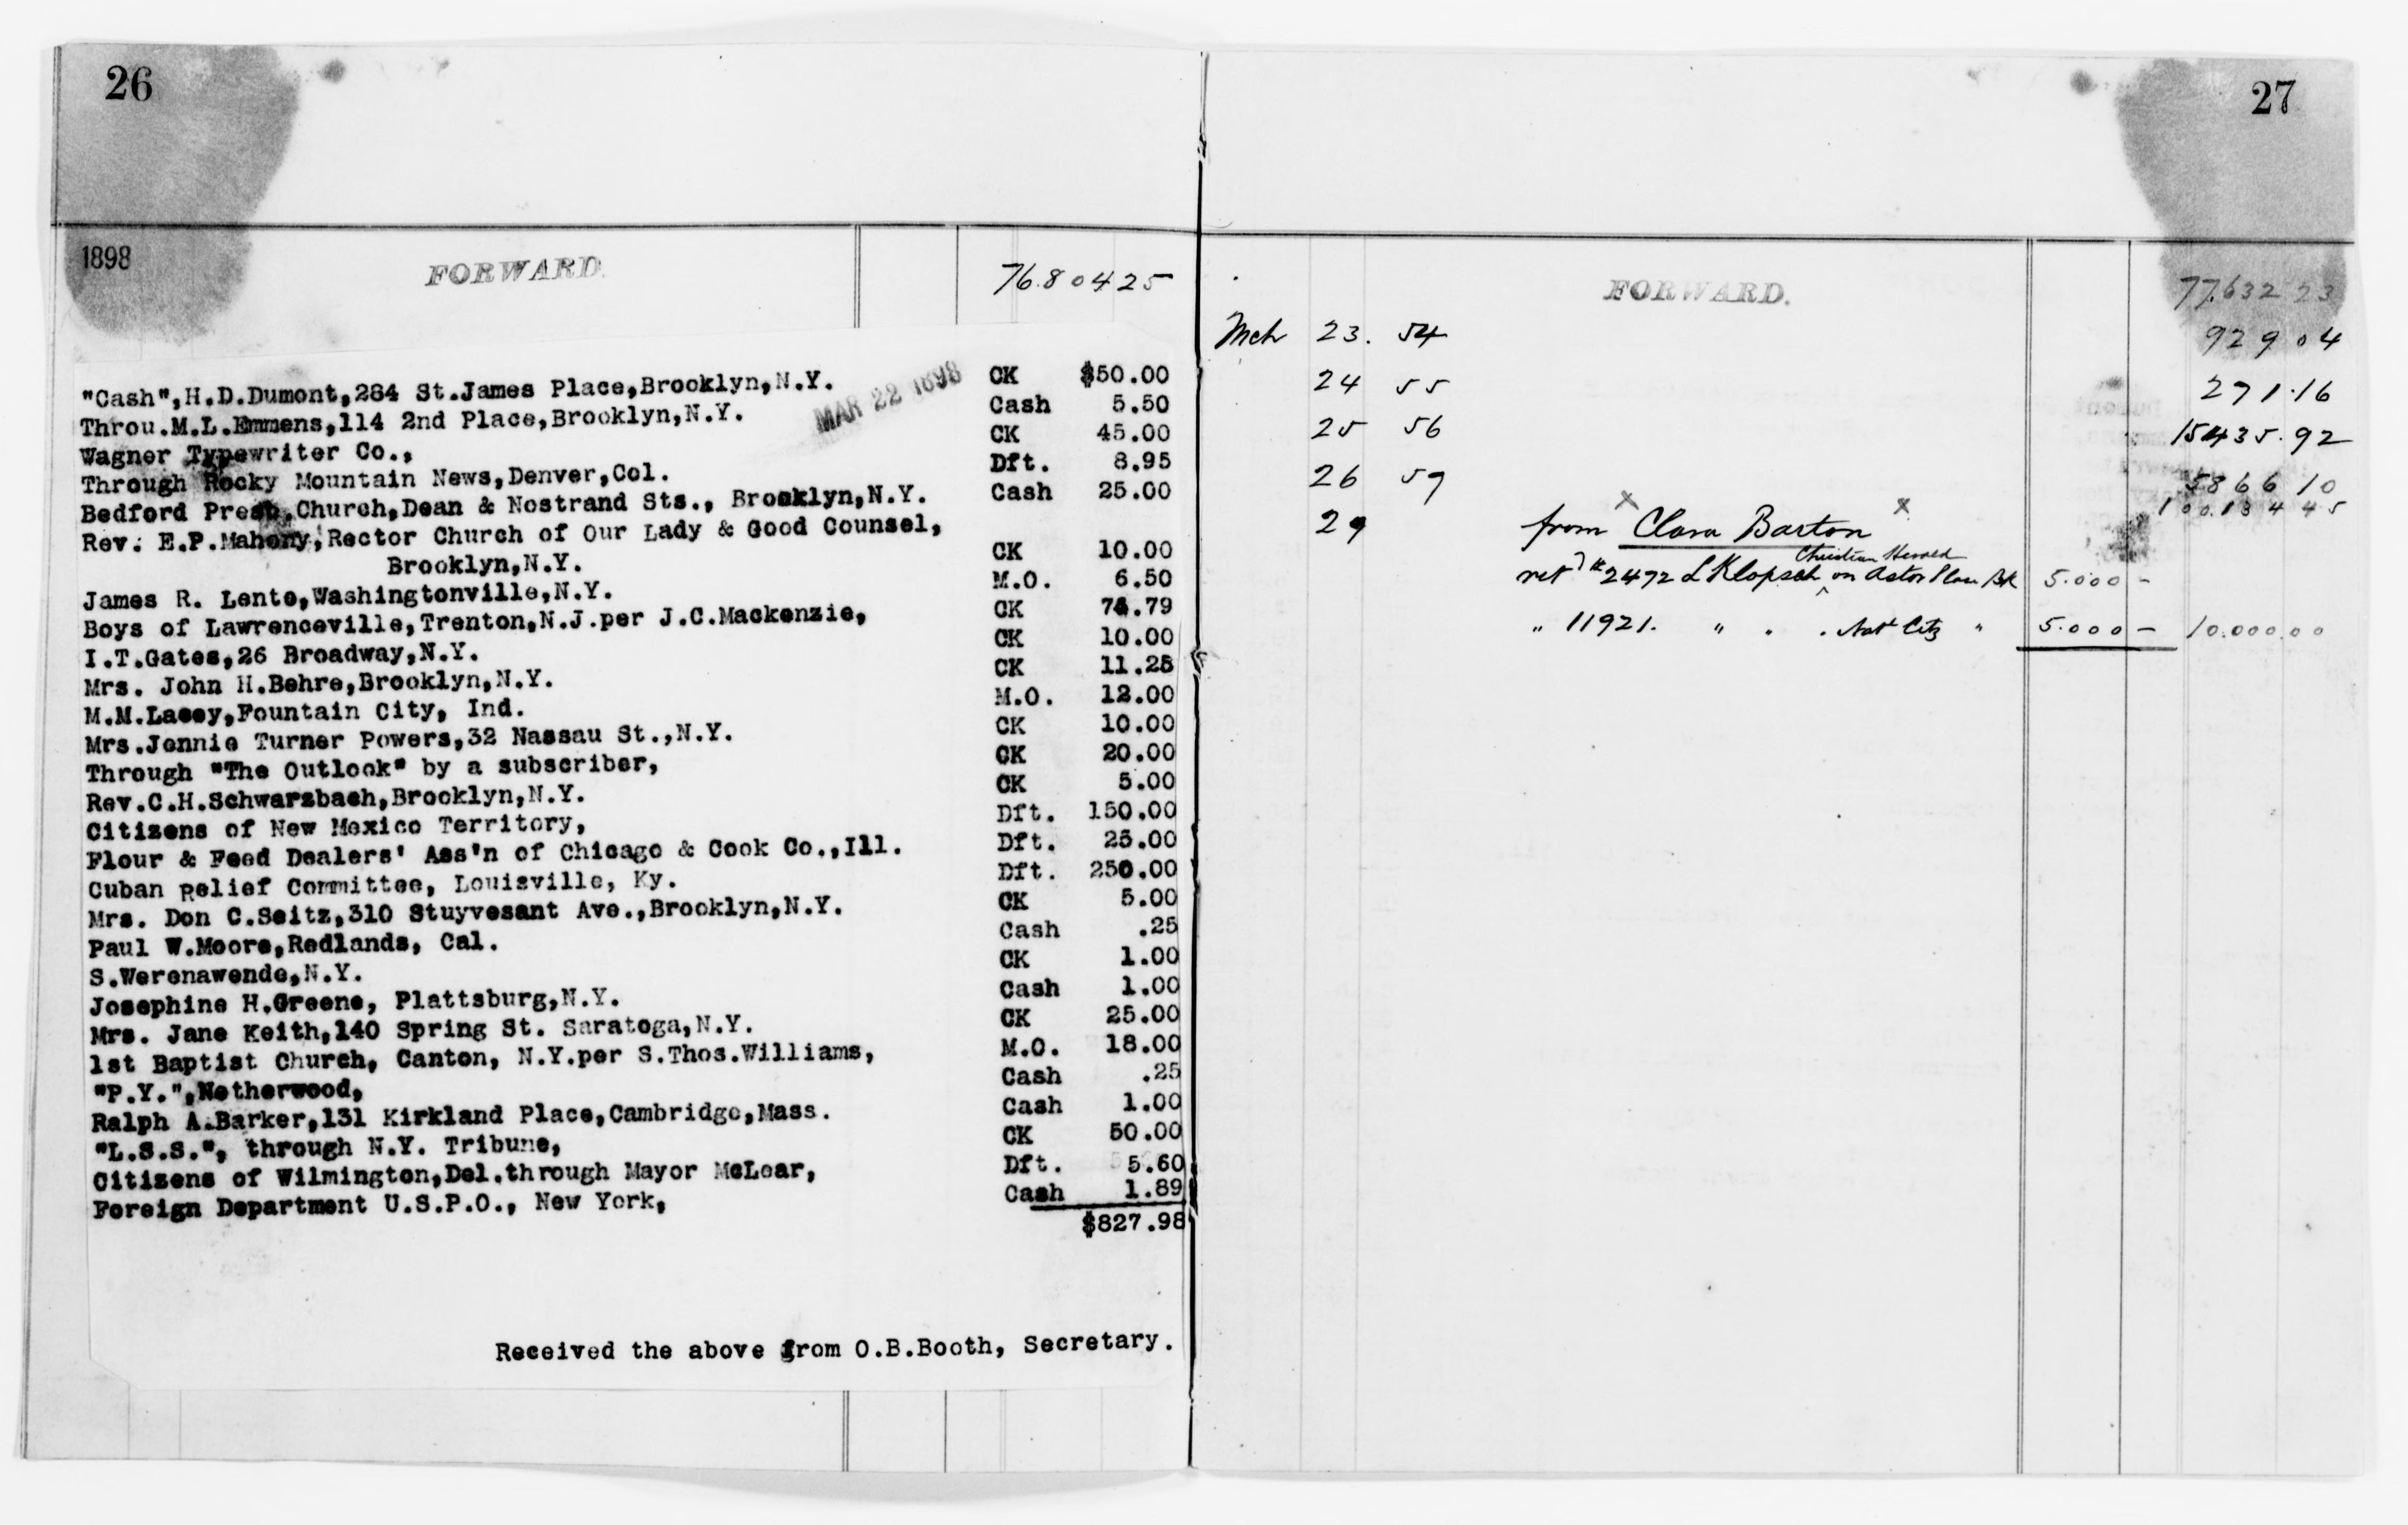 26
1898 FORWARD. 76.804 25
MAR 22 1898
"Cash",H.D.Dumont,284 St.James Place,Brooklyn,N.Y. CK $50.00
Throu.M.L.Emmens,114 2nd Place,Brooklyn,N.Y. Cash 5.50
Wagner Typewriter Co., CK 45.00
Through Rocky Mountain News,Denver,Col. Dft. 8.95
Bedford Presb.Church,Dean & Nostrand Sts., Brooklyn,N.Y. Cash 25.00
Rev. E.P.Mahony,Rector Church of Our Lady & Good Counsel,
Brooklyn,N.Y. CK 10.00
James R. Lente,Washingtonville,N.Y. M.O. 6.50
Boys of Lawrenceville,Trenton,N.J.per J.C.Mackenzie, CK 74.79
I.T.Gates,26 Broadway,N.Y. CK 10.00
Mrs. John H.Behre,Brooklyn,N.Y. CK 11.25
M.M.Lacey,Fountain City, Ind. M.O. 12.00
Mrs.Jennie Turner Powers,32 Nassau St.,N.Y. CK 10.00
Through "The Outlook" by a subscriber, CK 20.00
Rev.C.H.Schwarzbach,Brooklyn,N.Y. CK 5.00
Citizens of New Mexico Territory, Dft. 150.00
Flour & Feed Dealers' Ass'n of Chicago & Cook Co.,Ill. Dft. 25.00
Cuban Relief Committee, Louisville, Ky. Dft. 250.00
Mrs. Don C.Seitz,310 Stuyvesant Ave.,Brooklyn,N.Y. CK 5.00
Paul W.Moore,Redlands, Cal. Cash .25
S.Werenawende,N.Y. CK 1.00
Josephine H.Greene, Plattsburg,N.Y. Cash 1.00
Mrs. Jane Keith,140 Spring St. Saratoga,N.Y. CK 25.00
1st Baptist Church, Canton, N.Y.per S.Thos.Williams, M.O. 18.00
"P.Y.",Netherwood, Cash .25
Ralph A.Barker,131 Kirkland Place,Cambridge,Mass. Cash 1.00
"L.S.S.", through N.Y. Tribune, CK 50.00
Citizens of Wilmington,Del.through Mayor McLear, Dft. 5.60
Foreign Department U.S.P.O., New York, Cash 1.89
$827.98
Received the above from O.B.Booth, Secretary.
27
FORWARD. 77.632 23
Mch 23. 54 929 04
24 55 271.16
25 56 15435.92
26 59 5866 10
100.134 45
29 from x Clara Barton x
Christian Herald
#2472 L Klopsch ^ on Astor Place Bk 5.000 -
" 11921. " " . Nat City " 5.000 - 10.000.00